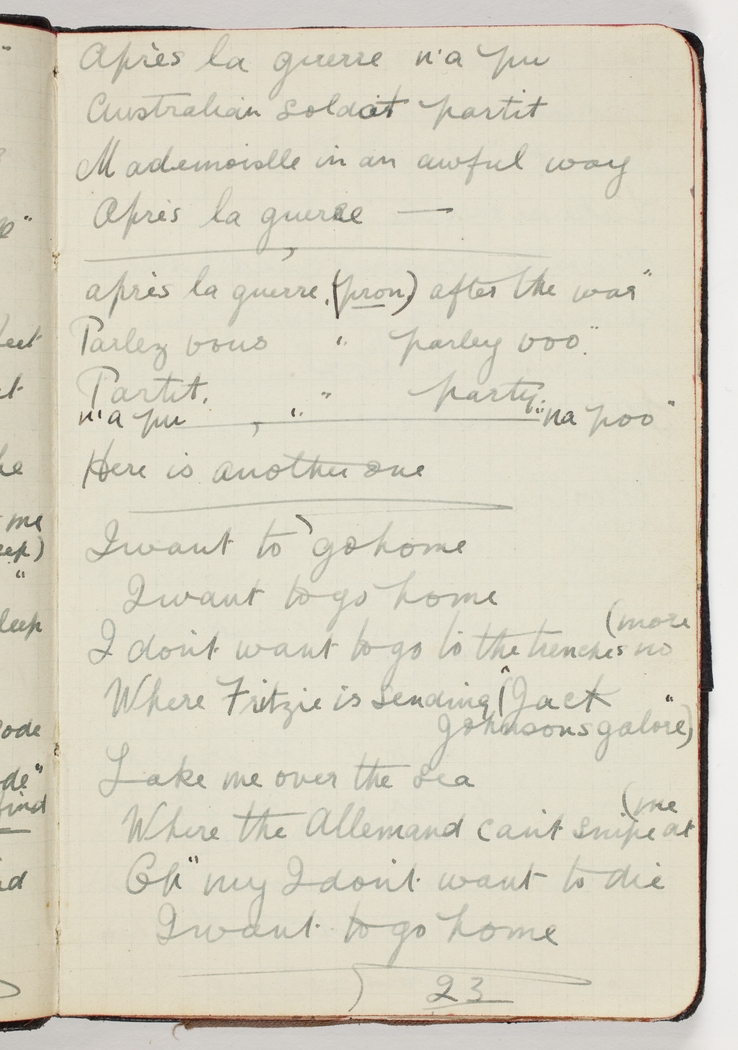 Après la guerre n'a pu
Australian soldat partit
Mademoislle in an awful way
Après la guerre —
après la guerre. (pron) after the war"
Parlez vous " parley voo."
Partit. " party.
n'a pu " "na poo"
Here is another one
I want to go home
I want to go home
(more
I don't want to go to the trenches no
Where Fritzie is sending "(Jack
Johnsons galore")
Take me over the sea
(me
Where the Allemand can't snipe at
Oh" my I don't want to die
I want to go home
23
feet
he
me
eep)
"
leep
ode
de"
find